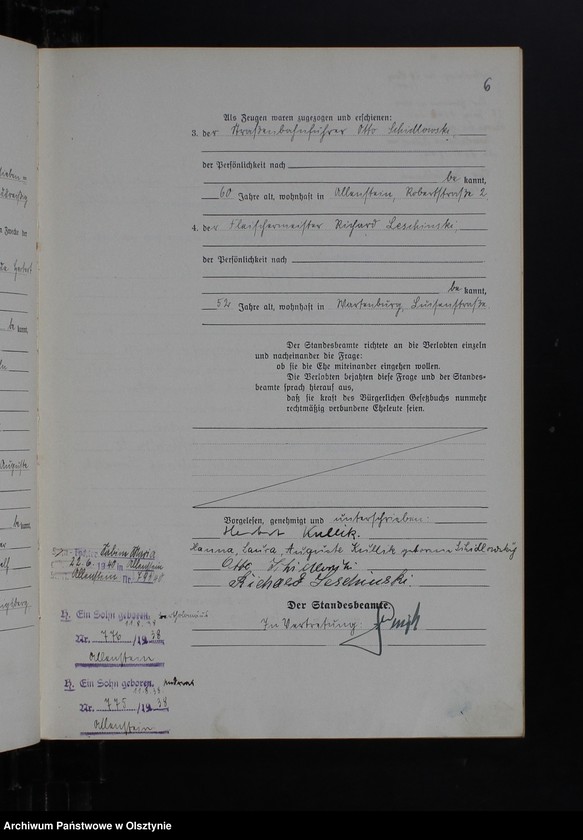 6
Als Zeugen waren zugezogen und erschienen:
3. der Straßenbahnführer Otto Schidlowski,
der Persönlichkeit nach
be kannt,
60 Jahre alt, wohnhaft in Allenstein, Robertstraße 2
4. der Fleischermeister Richard Leschinski,
der Persönlichkeit nach
be kannt,
52 Jahre alt, wohnhaft in Wartenburg, Luisenstraße
Der Standesbeamte richtete an die Verlobten einzeln
und nacheinander die Frage:
ob sie die Ehe miteinander eingehen wollen.
Die Verlobten bejahten diese Frage und der Standes-
beamte sprach hierauf aus,
daß sie kraft des Bürgerlichen Gesetzbuchs nunmehr
rechtmäßig verbundene Eheleute seien.
Vorgelesen, genehmigt und unterschrieben:
Herbert Kullik.
Hanna, Laura, Auguste Kullik geborene Schidlowsky
Otto Schidlowski
Richard Leschinski.
Der Standesbeamte.
In Vertretung:
Sabine Maria
22.6.1940 in Allenstein
Allenstein Nr.
H. Ein Sohn geboren.
11.8.38
Nr. 776/1938
Allenstein
H. Ein Sohn geboren. Andreas
11.8.38
Nr. 775/1938
Allenstein
be kannt
Auguste
be kannt
Archiwum Państwowe w Olsztynie